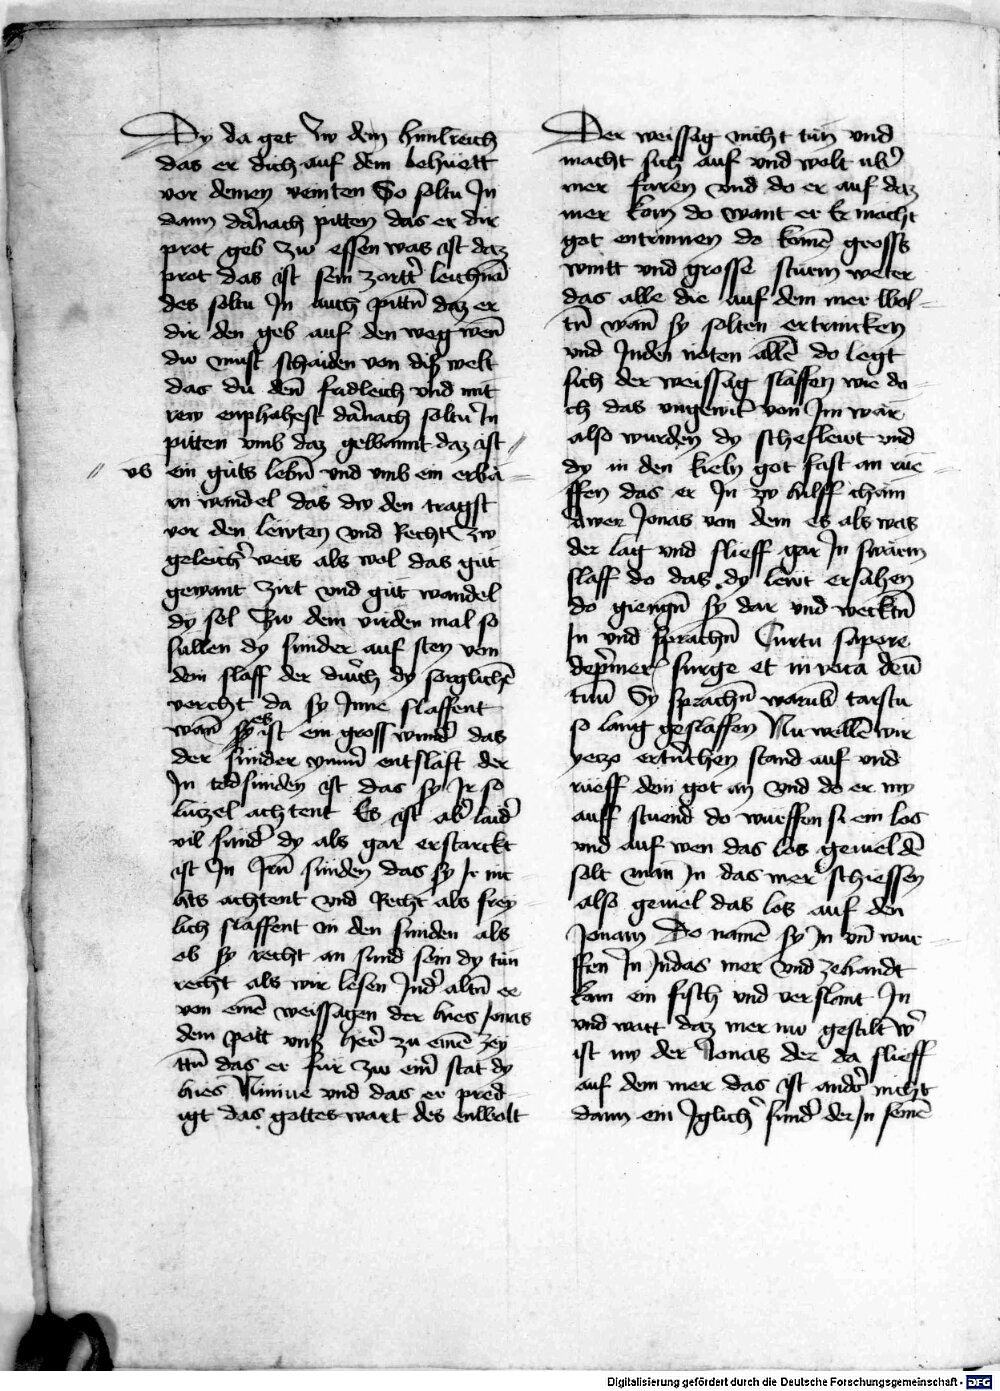 Dy da get zw dem himlreich
das er dich auf dem behuett
vor deinen veinten So soltu In
dann dar̄nach pitten das er dir
prot geb zw essen was ist daz
prot das ist sein zartt̄ leichnā
des soltu In auch pittn̄ daz er
dir den geb auf den weg wen̄
du must schaiden von diß welt
das du den̄ fridleich vnd mit
rew enphahest dar̄nach soltu In
pitten vmb daz gewannt daz ist //
// vs ein guts lebn̄ vnd vmb ein erbā
rn wandel das dw den tragst
vor den lewten vnd Recht zw
geleich̄ weis als wol das gut
gewant zirt vnd gut wandel
dy sel Zw dem virden mal so
sullen dy sunder auf sten von
dem slaff der durch dy sorglichē
vorcht da sy Inne slaffent
wan̄ sy es ist ein gross wund̄ das
der sunder ymm̄ entslaft der
In todsunden ist das sy Ir so
luczel achtent Es ist ab̄ laid̄
vil sund̄ dy als gar erstarckt
ist In Irn̄ sunden das sy Ir nit
hts achtent vnd Recht als frey
lich slaffent in den sunden als
ob sy recht an sund sein dy tun
recht als wir lesen Ind̄ altn̄ ee
von einē weissagen der hies Jonas
dem pott vnß her̄ zu einē zey
ttn̄ das er fur zw ein̄ stat dy
hies Niniue vnd das er pred
igt das gottes wart des enwolt
Der weissag nicht tun vnd
macht sich auf vnd wolt ub̄
mer faren vnd do er auf daz
mer kom do want er Er macht
got entrinnen do komē gross
wintt vnd grosse sturm weter
das alle die auf dem mer wol
tn̄ wan̄ sy solten ertrincken
vnd Inden noten allē do legt
sich der weissag slaffen wie do
ch das vngewit̄ von Im war
also wurden dy scheflewt vnd
dy in den kieln got fast an rue
ffen das er In zw hilff cham
Awer Jonas von dem es als was
der lag vnd slieff gar In swarm
slaff do das dy lewt ersahen
do giengn̄ sy dar vnd wecktn̄
In vnd sprachn̄ Curtu sapore
dep̄mer̄ surge et in voca deū
tuū Sy sprachn̄ warūb tarstu
so lang geslaffen Nu wellē wir
yeczo ertrinchen stand auf vnd
rueff dein got an vnd do er nw
auff stuend do wurffen si ein los
vnd auf wen das los geuieldē
solt man In das mer schiessen
also geuiel das los auf den
Jonam Do namē sy In vn̄ wur
ffen In Indas mer vnd zehandt
kam ein fisch vnd verslant In
vnd watt daz mer nw gestilt w̄
ist nw der Jonas der da slieff
auf dem mer das ist and̄ nicht
dann ein Iglich̄ sund̄ der In seinē
Digitalisierung gefördert durch die Deutsche Forschungsgemeinschaft - DFG